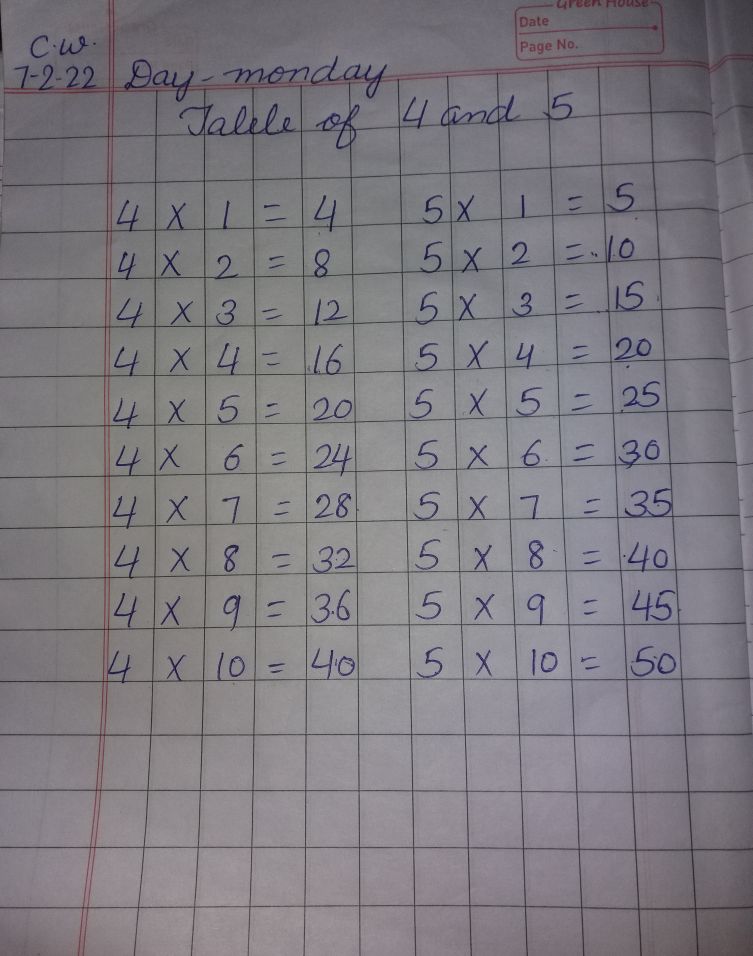 Green House
Date
Page No.
C.W.
7-2-22 Day-monday
Table of 4 and 5
4 X 1 = 4 5 X 1 = 5
4 X 2 = 8 5 X 2 = 10
4 X 3 = 12 5 X 3 = 15
4 X 4 = 16 5 X 4 = 20
4 X 5 = 20 5 X 5 = 25
4 X 6 = 24 5 X 6 = 30
4 X 7 = 28 5 X 7 = 35
4 X 8 = 32 5 X 8 = 40
4 X 9 = 36 5 X 9 = 45
4 X 10 = 40 5 X 10 = 50